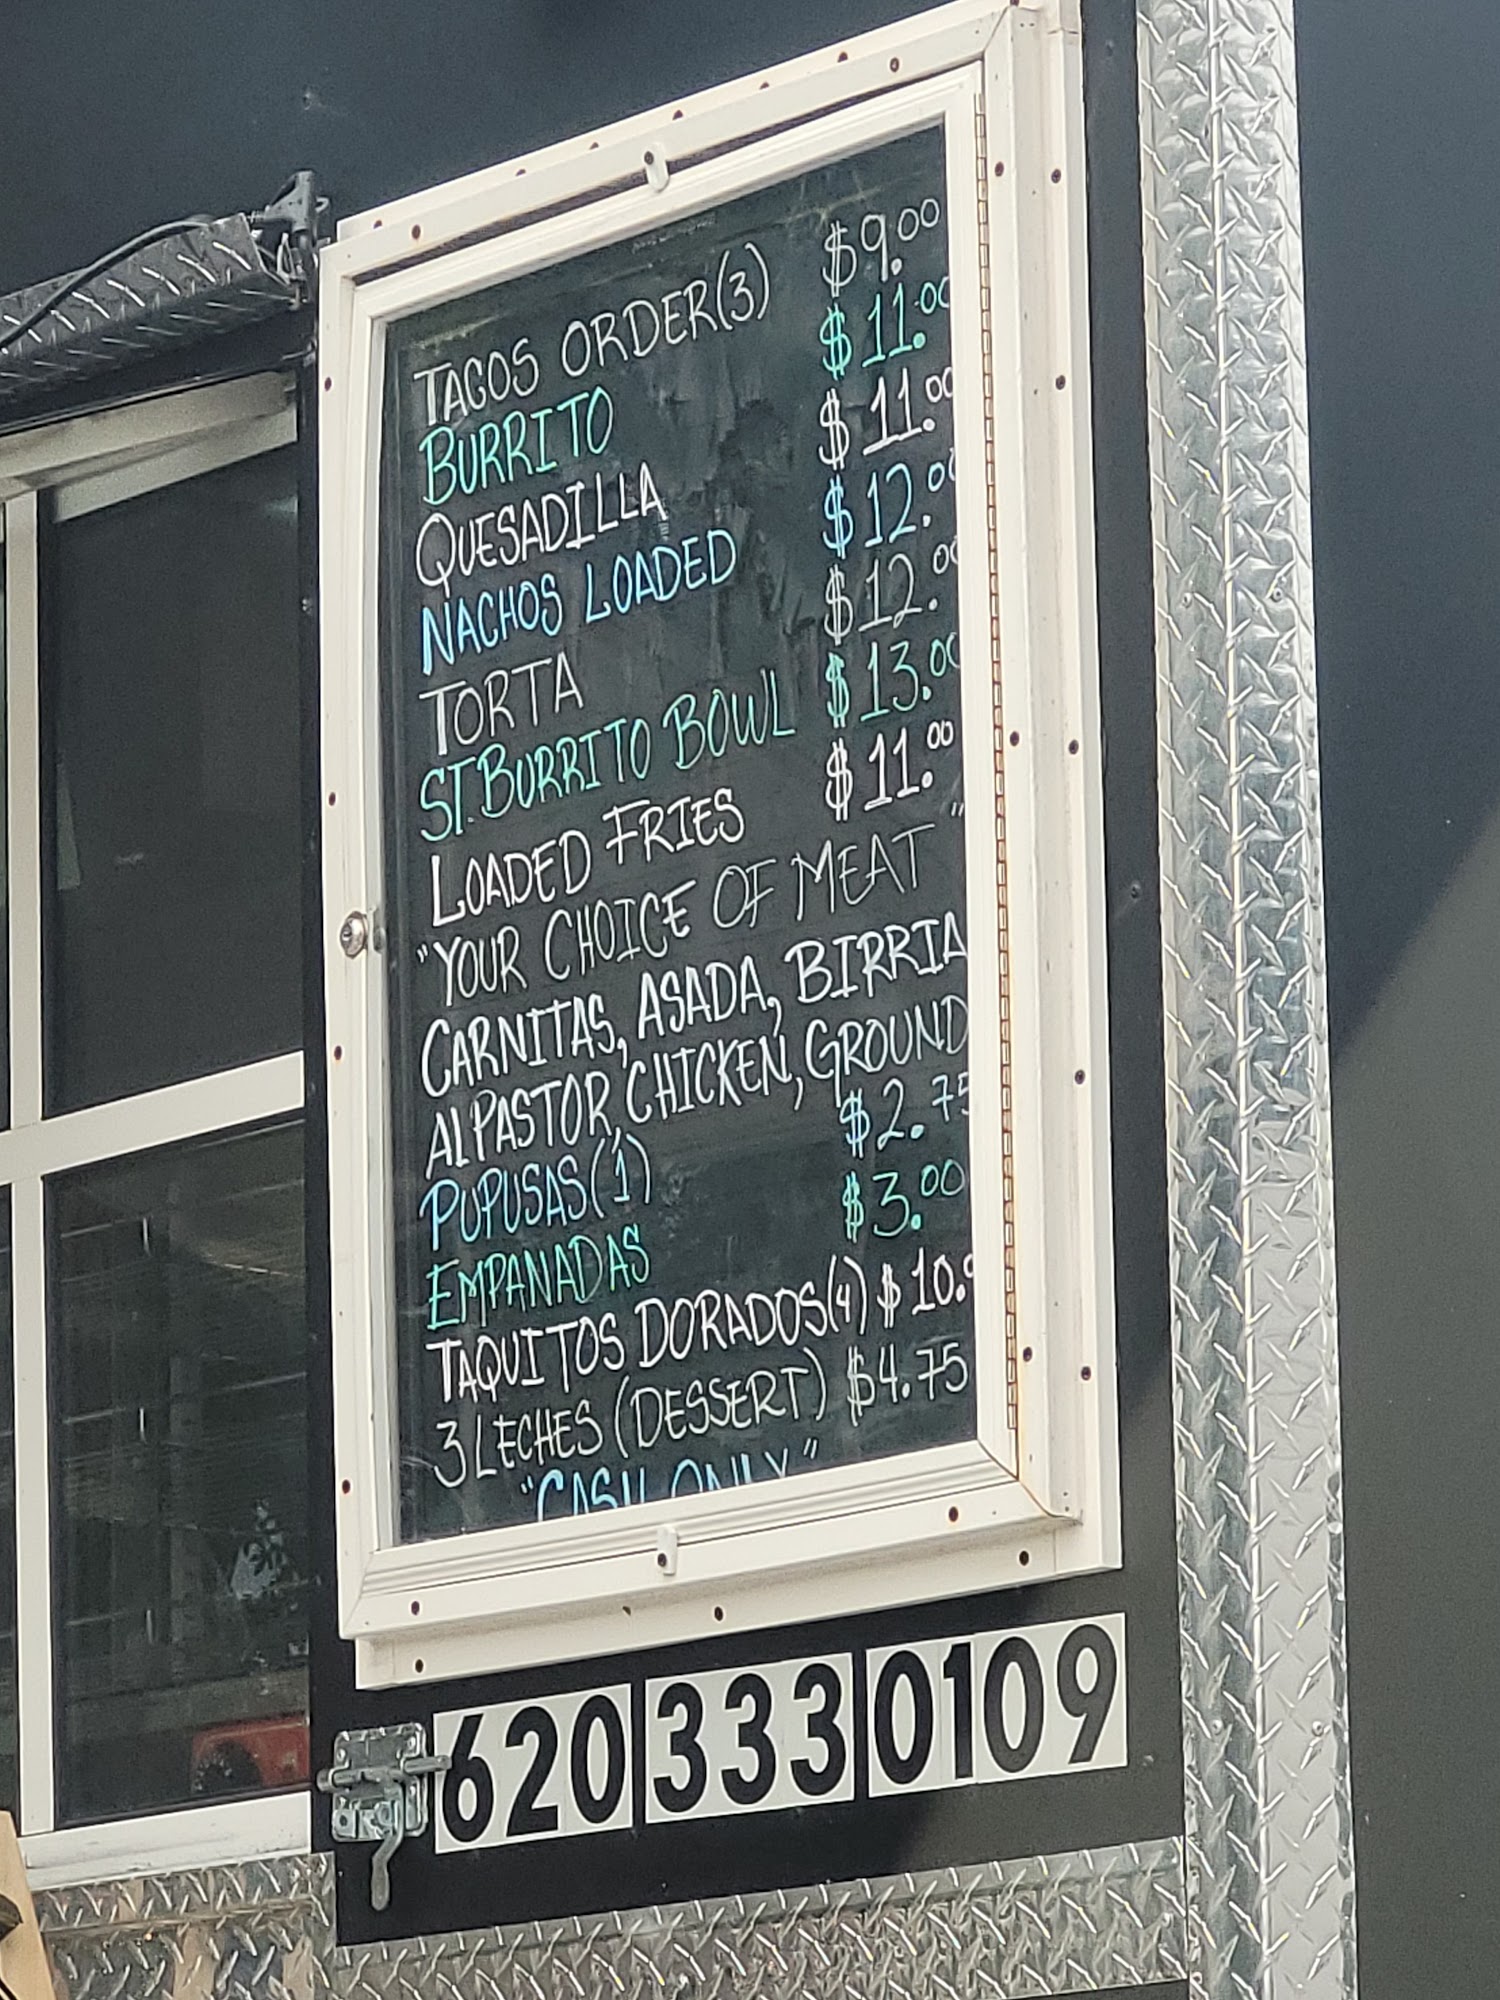 TACOS ORDER(3) $9.00
BURRITO $11.00
QUESADILLA $11.00
NACHOS LOADED $12.00
TORTA $12.00
ST.BURRITO BOWL $13.00
LOADED FRIES $11.00
"YOUR CHOICE OF MEAT"
CARNITAS, ASADA, BIRRIA
ALPASTOR, CHICKEN, GROUND
PUPUSAS(1) $2.75
EMPANADAS $3.00
TAQUITOS DORADOS(4) $10.
3 LECHES (DESSERT) $4.75
"CASH ONLY"
620 333 0109